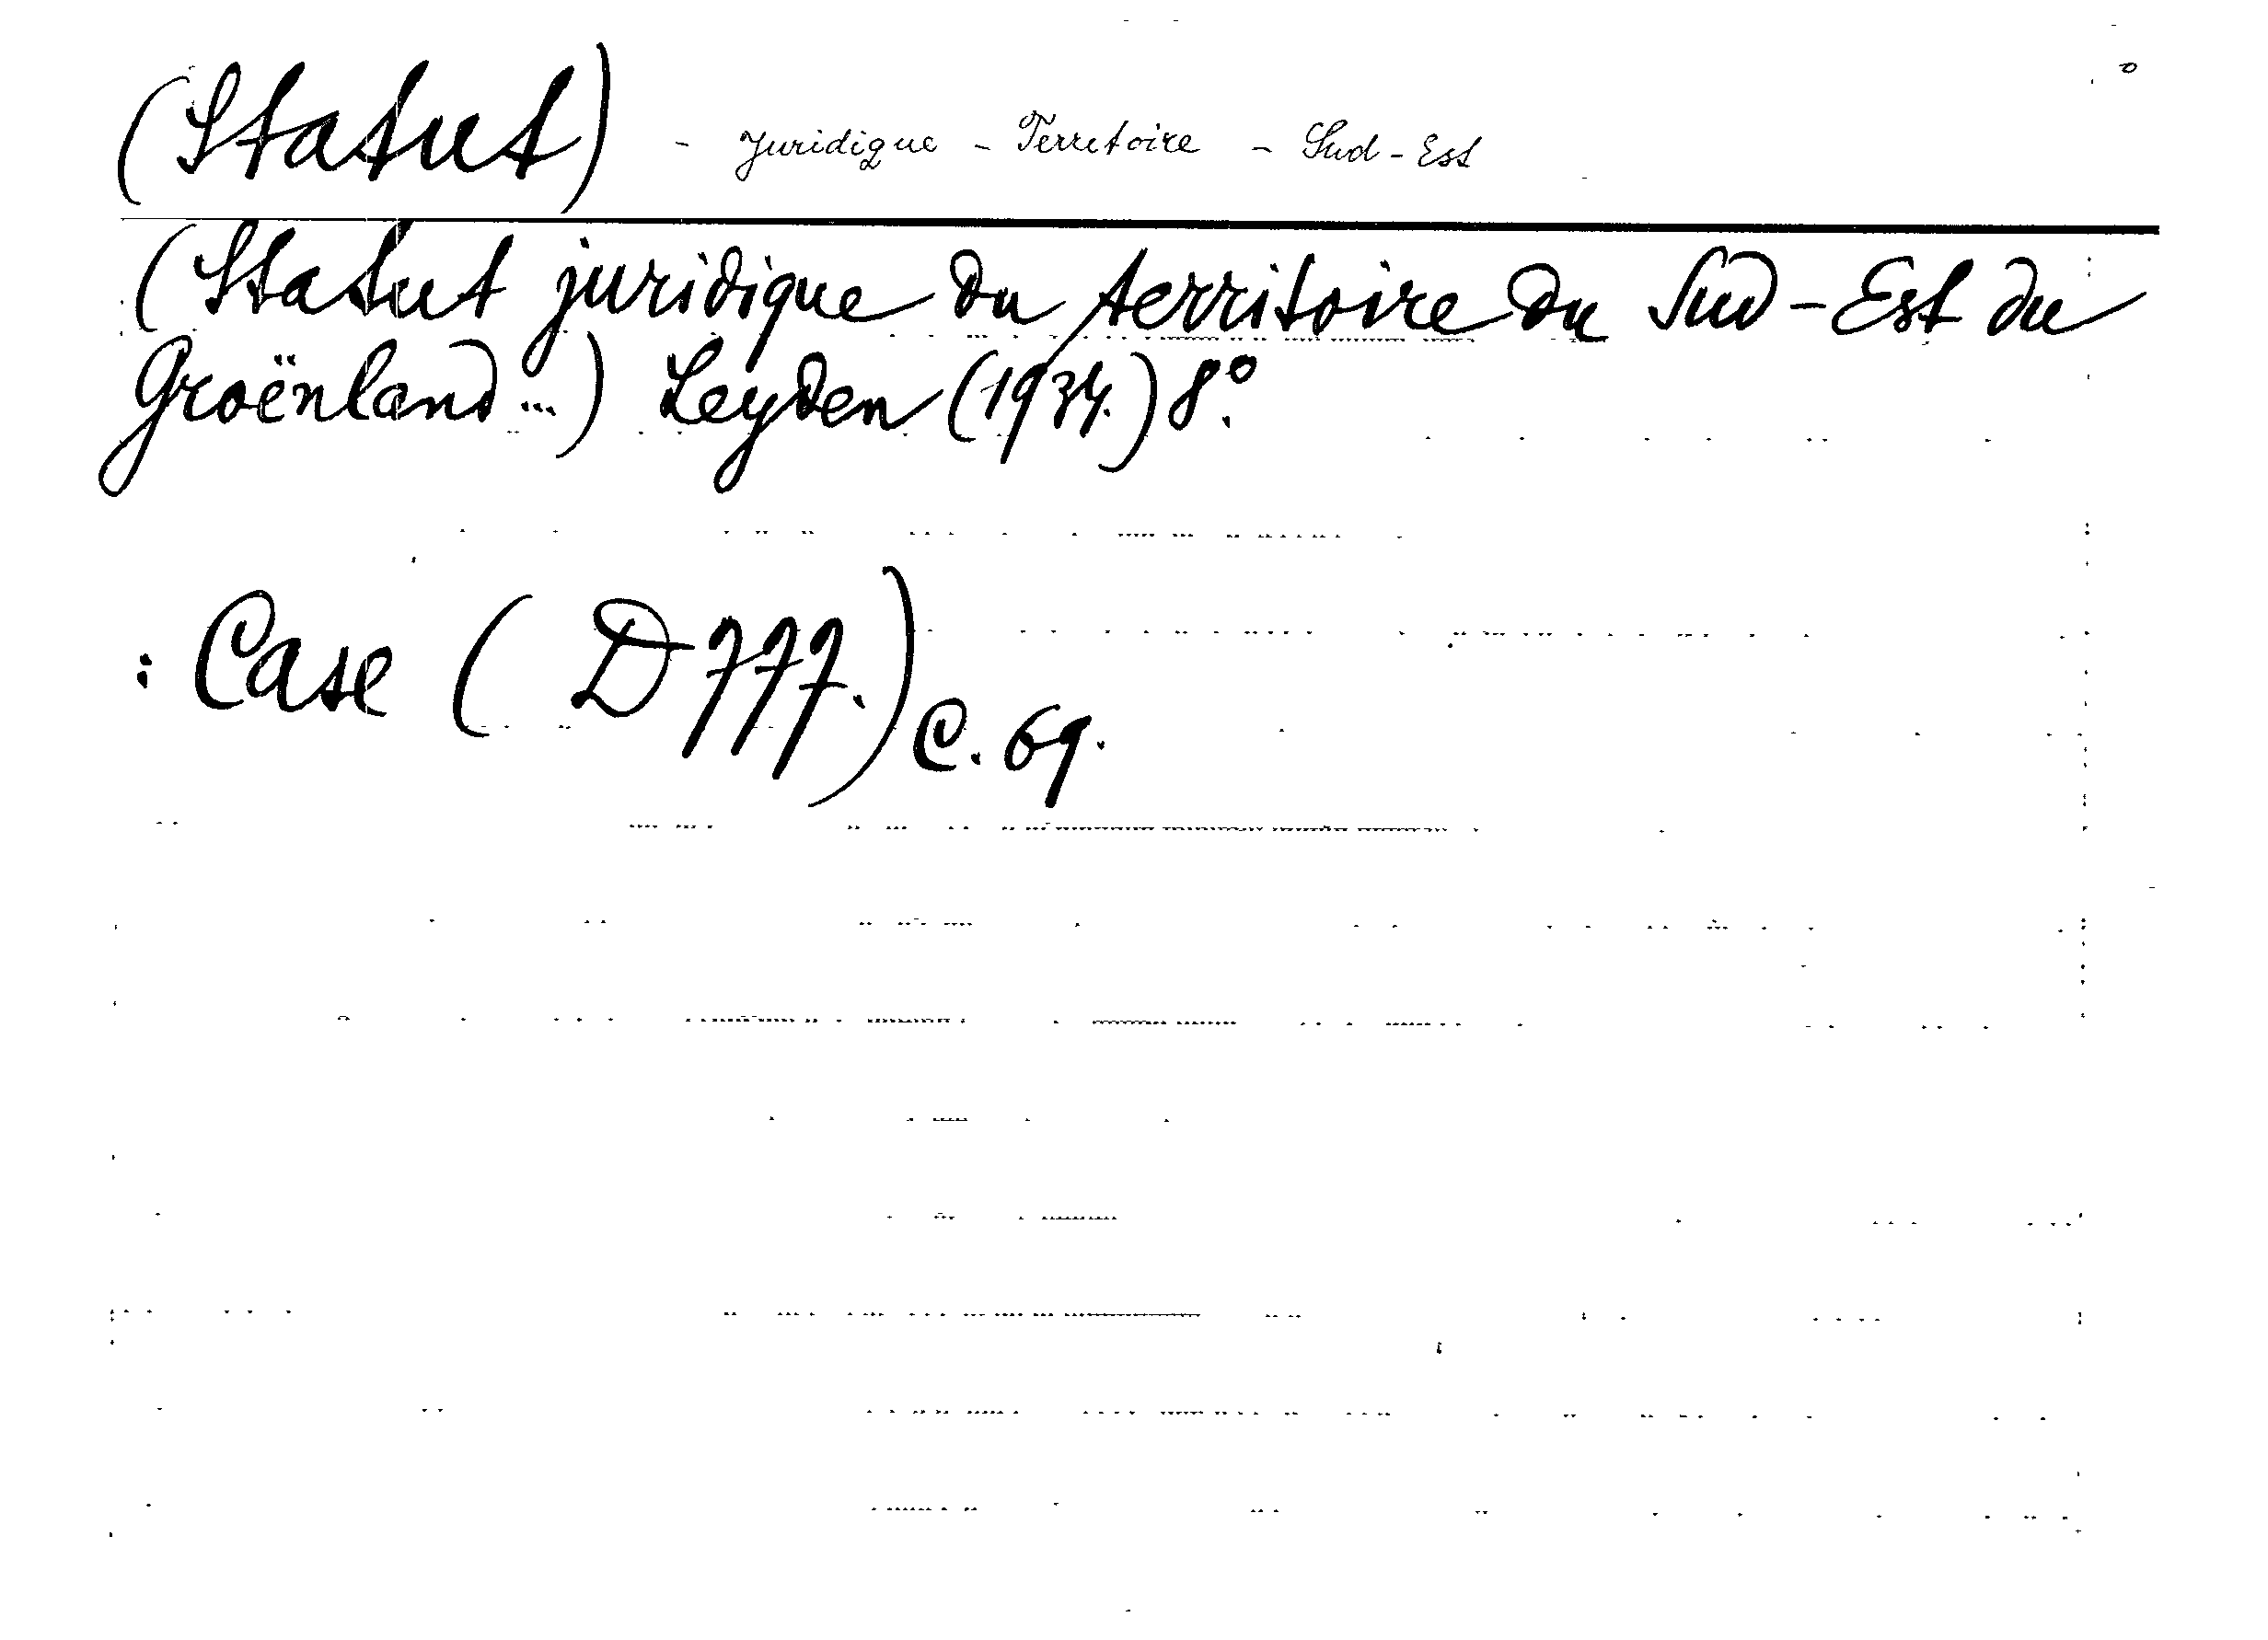 (Statut) - Juridique - Territoire - Sud-Est
(Statut juridique du territoire du Sud-Est du
Groënland...) Leyden (1934.) 8°.
: Case (D777.) C. 69.